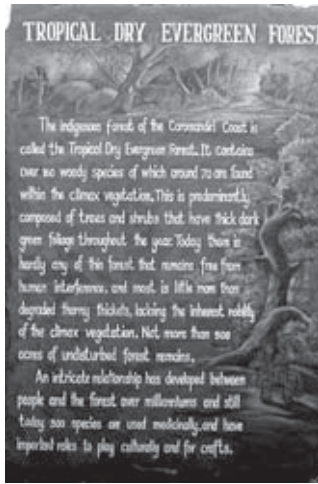 TROPICAL DRY EVERGREEN FOREST
The indigenous forest of the Coromandel Coast is
called the Tropical Dry Evergreen Forest. It contains
over 160 woody species of which around 70 are found
within the climax vegetation. This is predominantly
composed of trees and shrubs that have thick dark
green foliage throughout the year. Today there is
hardly any of this forest that remains free from
human interference, and most is little more than
degraded thorny thickets, lacking the inherent nobility
of the climax vegetation. Not more than 500
acres of undisturbed forest remains.
An intricate relationship has developed between
people and the forest over millenniums and still
today 300 species are used medicinally, and have
important roles to play culturally and for crafts.